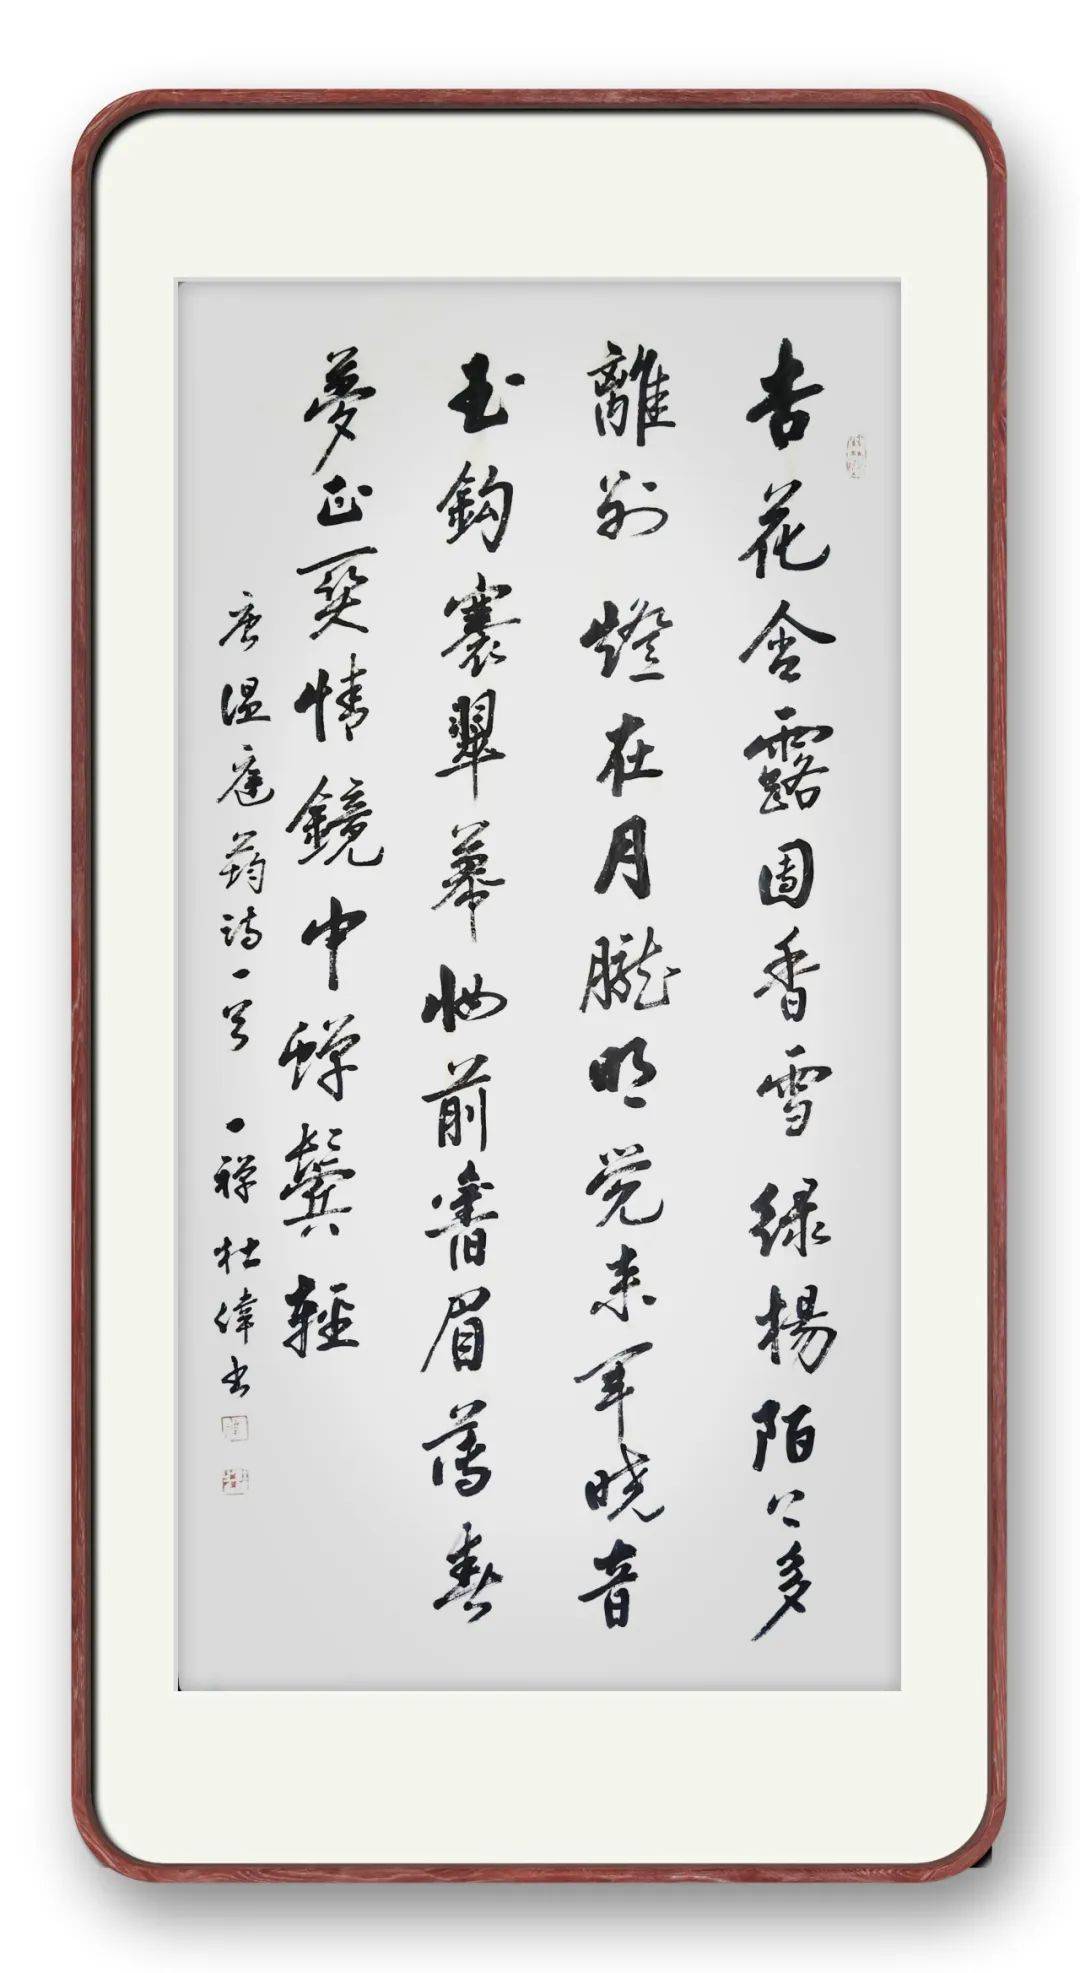 杏花含露團香雪綠楊陌上多
離別燈在月朧明覺來聞曉音
玉鈎褰翠幕妝前舊眉薄春
夢正關情鏡中蟬鬢輕
唐溫庭筠詩一首 一禪杜偉書